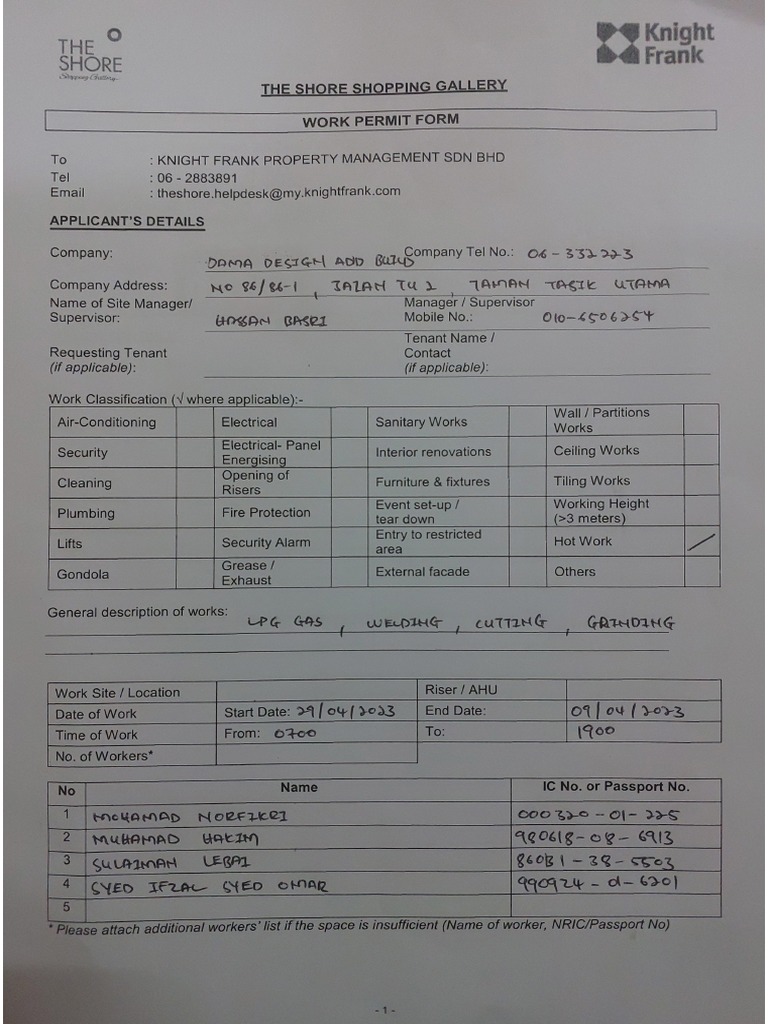 THE
SHORE
Shopping Gallery
Knight
Frank
THE SHORE SHOPPING GALLERY
WORK PERMIT FORM
To : KNIGHT FRANK PROPERTY MANAGEMENT SDN BHD
Tel : 06 - 2883891
Email : theshore.helpdesk@my.knightfrank.com
APPLICANT'S DETAILS
Company: DAMA DESIGN ADD BUILD Company Tel No.: 06-332223
Company Address: NO 86/86-1 , JALAN TU 2 , TAMAN TASIK UTAMA
Name of Site Manager/ Manager / Supervisor
Supervisor: HASSAN BASRI Mobile No.: 010-6506254
Tenant Name /
Requesting Tenant Contact
(if applicable): (if applicable):
Work Classification (√ where applicable):-
Air-Conditioning Electrical Sanitary Works Wall / Partitions Works
Security Electrical- Panel Energising Interior renovations Ceiling Works
Cleaning Opening of Risers Furniture & fixtures Tiling Works
Plumbing Fire Protection Event set-up / tear down Working Height (>3 meters)
Lifts Security Alarm Entry to restricted area Hot Work /
Gondola Grease / Exhaust External facade Others
General description of works: LPG GAS , WELDING , CUTTING , GRINDING
Work Site / Location Riser / AHU
Date of Work Start Date: 29/04/2023 End Date: 09/04/2023
Time of Work From: 0700 To: 1900
No. of Workers*
No Name IC No. or Passport No.
1 MOHAMAD NORFIKRI 000320-01-225
2 MUHAMAD HAKIM 980618-08-6913
3 SULAIMAN LEBAI 860131-38-5503
4 SYED IFZAL SYED OMAR 990924-d-6201
5
* Please attach additional workers' list if the space is insufficient (Name of worker, NRIC/Passport No)
- 1 -